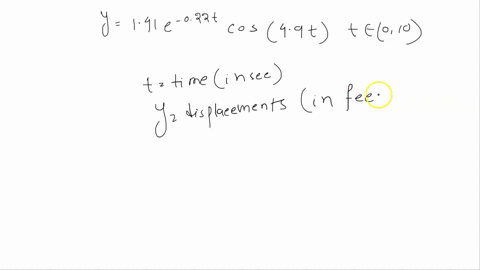 y = 1.41 e^{-0.22t} cos (4.9t) t ∈ (0,10)
t = time (in sec)
y = displacements (in fee